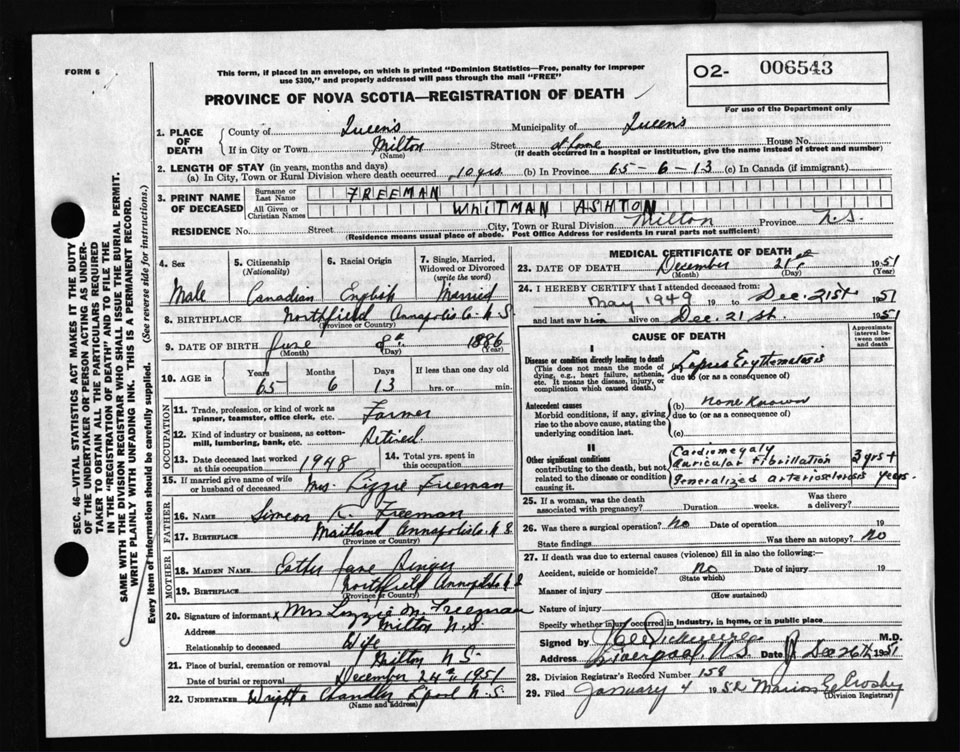 FORM 6
This form, if placed in an envelope, on which is printed "Dominion Statistics—Free, penalty for improper
use $300," and properly addressed will pass through the mail "FREE"
O2- 006543
PROVINCE OF NOVA SCOTIA—REGISTRATION OF DEATH
For use of the Department only
SEC. 46—VITAL STATISTICS ACT MAKES IT THE DUTY
OF THE UNDERTAKER OR PERSON ACTING AS UNDER-
TAKER TO OBTAIN ALL THE PARTICULARS REQUIRED
IN THE "REGISTRATION OF DEATH" AND TO FILE THE
SAME WITH THE DIVISION REGISTRAR WHO SHALL ISSUE THE BURIAL PERMIT.
WRITE PLAINLY WITH UNFADING INK. THIS IS A PERMANENT RECORD.
Every item of information should be carefully supplied. (See reverse side for instructions.)
1. PLACE OF DEATH County of Queens Municipality of Queens
If in City or Town Milton (Name) Street at home House No.
(If death occurred in a hospital or institution, give the name instead of street and number)
2. LENGTH OF STAY (in years, months and days)
(a) In City, Town or Rural Division where death occurred 10 yrs. (b) In Province 65-6-13 (c) In Canada (if immigrant)
3. PRINT NAME OF DECEASED Surname or Last Name FREEMAN
All Given or Christian Names WHITMAN ASHTON
RESIDENCE No. Street City, Town or Rural Division Milton Province N.S.
(Residence means usual place of abode. Post Office Address for residents in rural parts not sufficient)
4. Sex Male
5. Citizenship (Nationality) Canadian
6. Racial Origin English
7. Single, Married, Widowed or Divorced (write the word) Married
8. BIRTHPLACE Northfield Annapolis Co. N.S.
(Province or Country)
9. DATE OF BIRTH June (Month) 8th (Day) 1886 (Year)
10. AGE in Years 65 Months 6 Days 13 If less than one day old hrs. or min.
OCCUPATION
11. Trade, profession, or kind of work as spinner, teamster, office clerk, etc. Farmer
12. Kind of industry or business, as cotton-mill, lumbering, bank, etc. Retired.
13. Date deceased last worked at this occupation 1948 14. Total yrs. spent in this occupation
15. If married give name of wife or husband of deceased Mrs. Lizzie Freeman
FATHER
16. NAME Simeon Freeman
17. BIRTHPLACE Maitland Annapolis Co. N.S
(Province or Country)
MOTHER
18. MAIDEN NAME Jane
19. BIRTHPLACE Northfield Annapolis N.S
(Province or Country)
20. Signature of informant x Mrs Lizzie M. Freeman
Address Milton N.S.
Relationship to deceased Wife
21. Place of burial, cremation or removal Milton N.S.
Date of burial or removal December 24th 1951
22. UNDERTAKER Wright & Chandler Lpool N.S.
(Name and Address)
MEDICAL CERTIFICATE OF DEATH
23. DATE OF DEATH December (Month) 21st (Day) 1951 (Year)
24. I HEREBY CERTIFY that I attended deceased from:
May 1949 19 to Dec. 21st 1951
and last saw him alive on Dec. 21 st. 1951
I CAUSE OF DEATH
Approximate interval between onset and death
Disease or condition directly leading to death
(This does not mean the mode of dying, e.g., heart failure, asthenia, etc. It means the disease, injury, or complication which caused death.)
(a) Lupus Erythematosis
due to (or as a consequence of)
Antecedent causes
Morbid conditions, if any, giving rise to the above cause, stating the underlying condition last.
(b) None Known
due to (or as a consequence of)
(c)
II
Other significant conditions contributing to the death, but not related to the disease or condition causing it.
Cardiomegaly
Auricular Fibrillation 3 yrs +
Generalized arteriosclerosis years.
25. If a woman, was the death associated with pregnancy? Duration weeks. Was there a delivery?
26. Was there surgical operation? No Date of operation 19
State findings Was there an autopsy? No
27. If death was due to external causes (violence) fill in also the following:—
Accident, suicide or homicide? No (State which) Date of injury 19
Manner of injury (How sustained)
Nature of injury
Specify whether injury occurred in industry, in home, or in public place
Signed by M.D.
Address Liverpool, N.S. Date Dec 26th 1951
28. Division Registrar's Record Number 158
29. Filed January 4 1952 Marion E. Crosby
(Division Registrar)